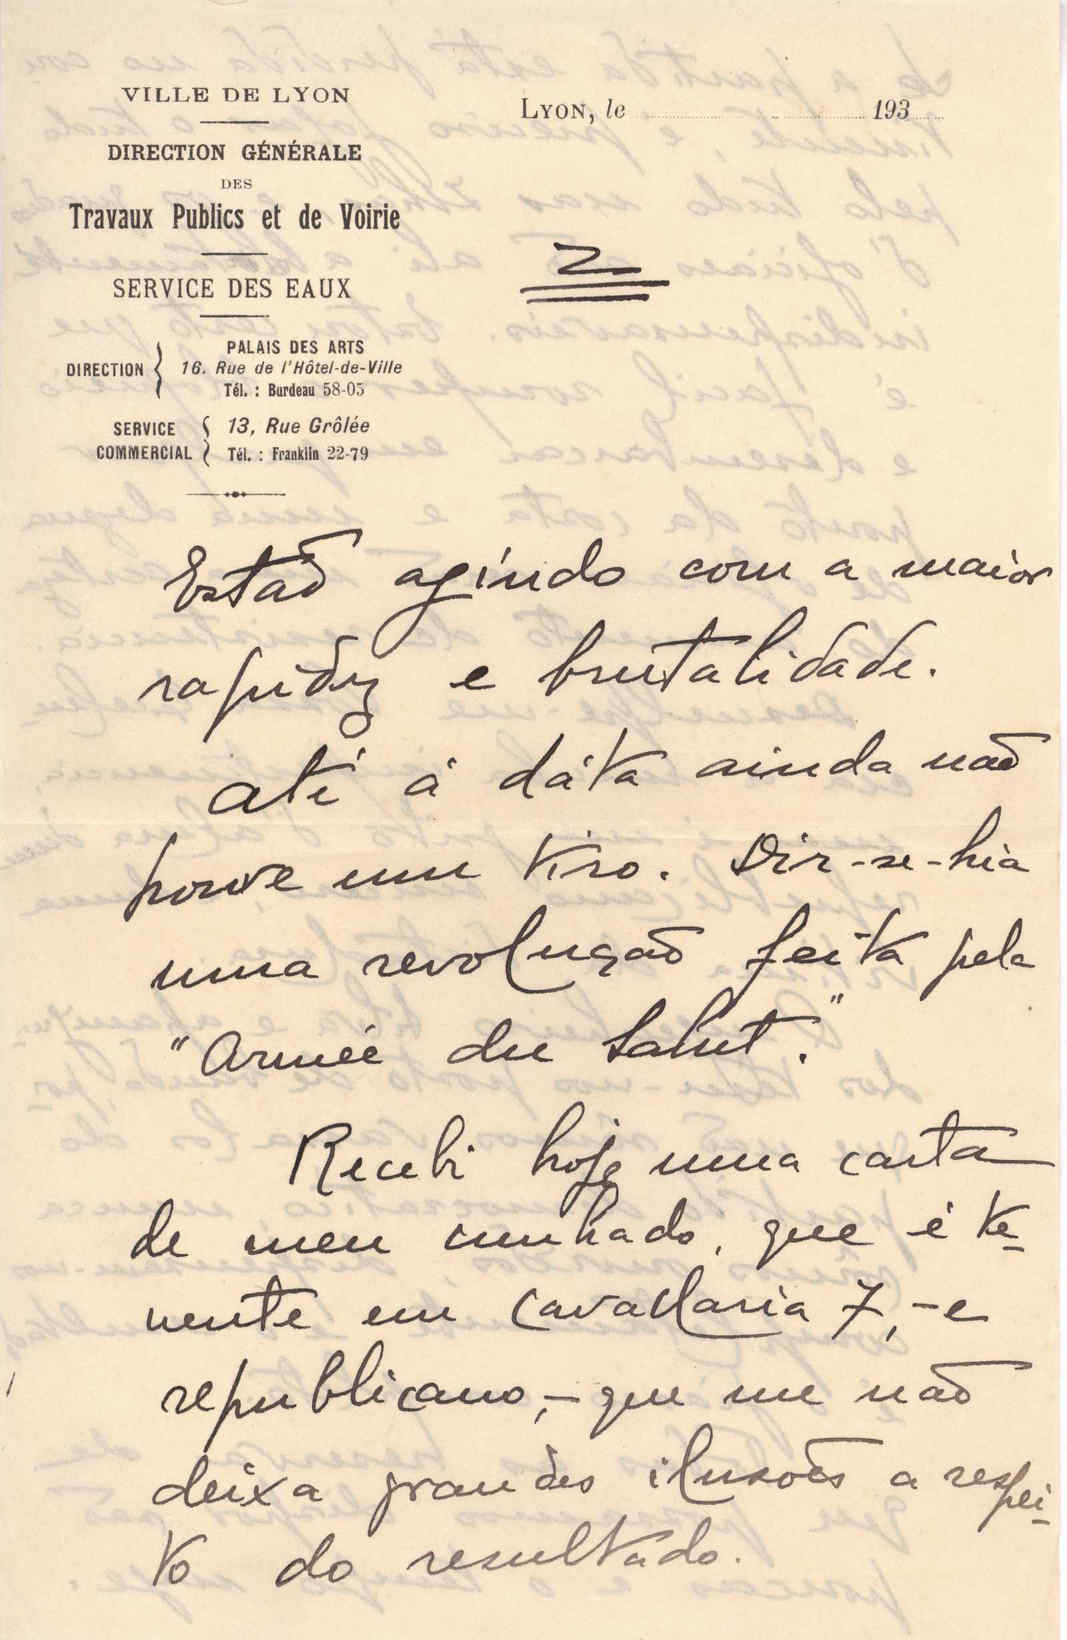 VILLE DE LYON
DIRECTION GÉNÉRALE
DES
Travaux Publics et de Voirie
SERVICE DES EAUX
DIRECTION { PALAIS DES ARTS
16. Rue de l'Hôtel-de-Ville
Tél. : Burdeau 58-05
SERVICE COMMERCIAL { 13, Rue Grôlée
Tél. : Franklin 22-79
LYON, le 193
2
Estão agindo com a maior
rapidez e brutalidade.
Até á dáta ainda não
houve um tiro. Dir-se-hia
uma revolução feita pela
"Armée du Salut."
Recebi hoje uma carta
de meu cunhado, que é te-
nente em Cavallaria 7, - e
republicano, - que me não
deixa grandes ilusões a respei-
to do resultado.